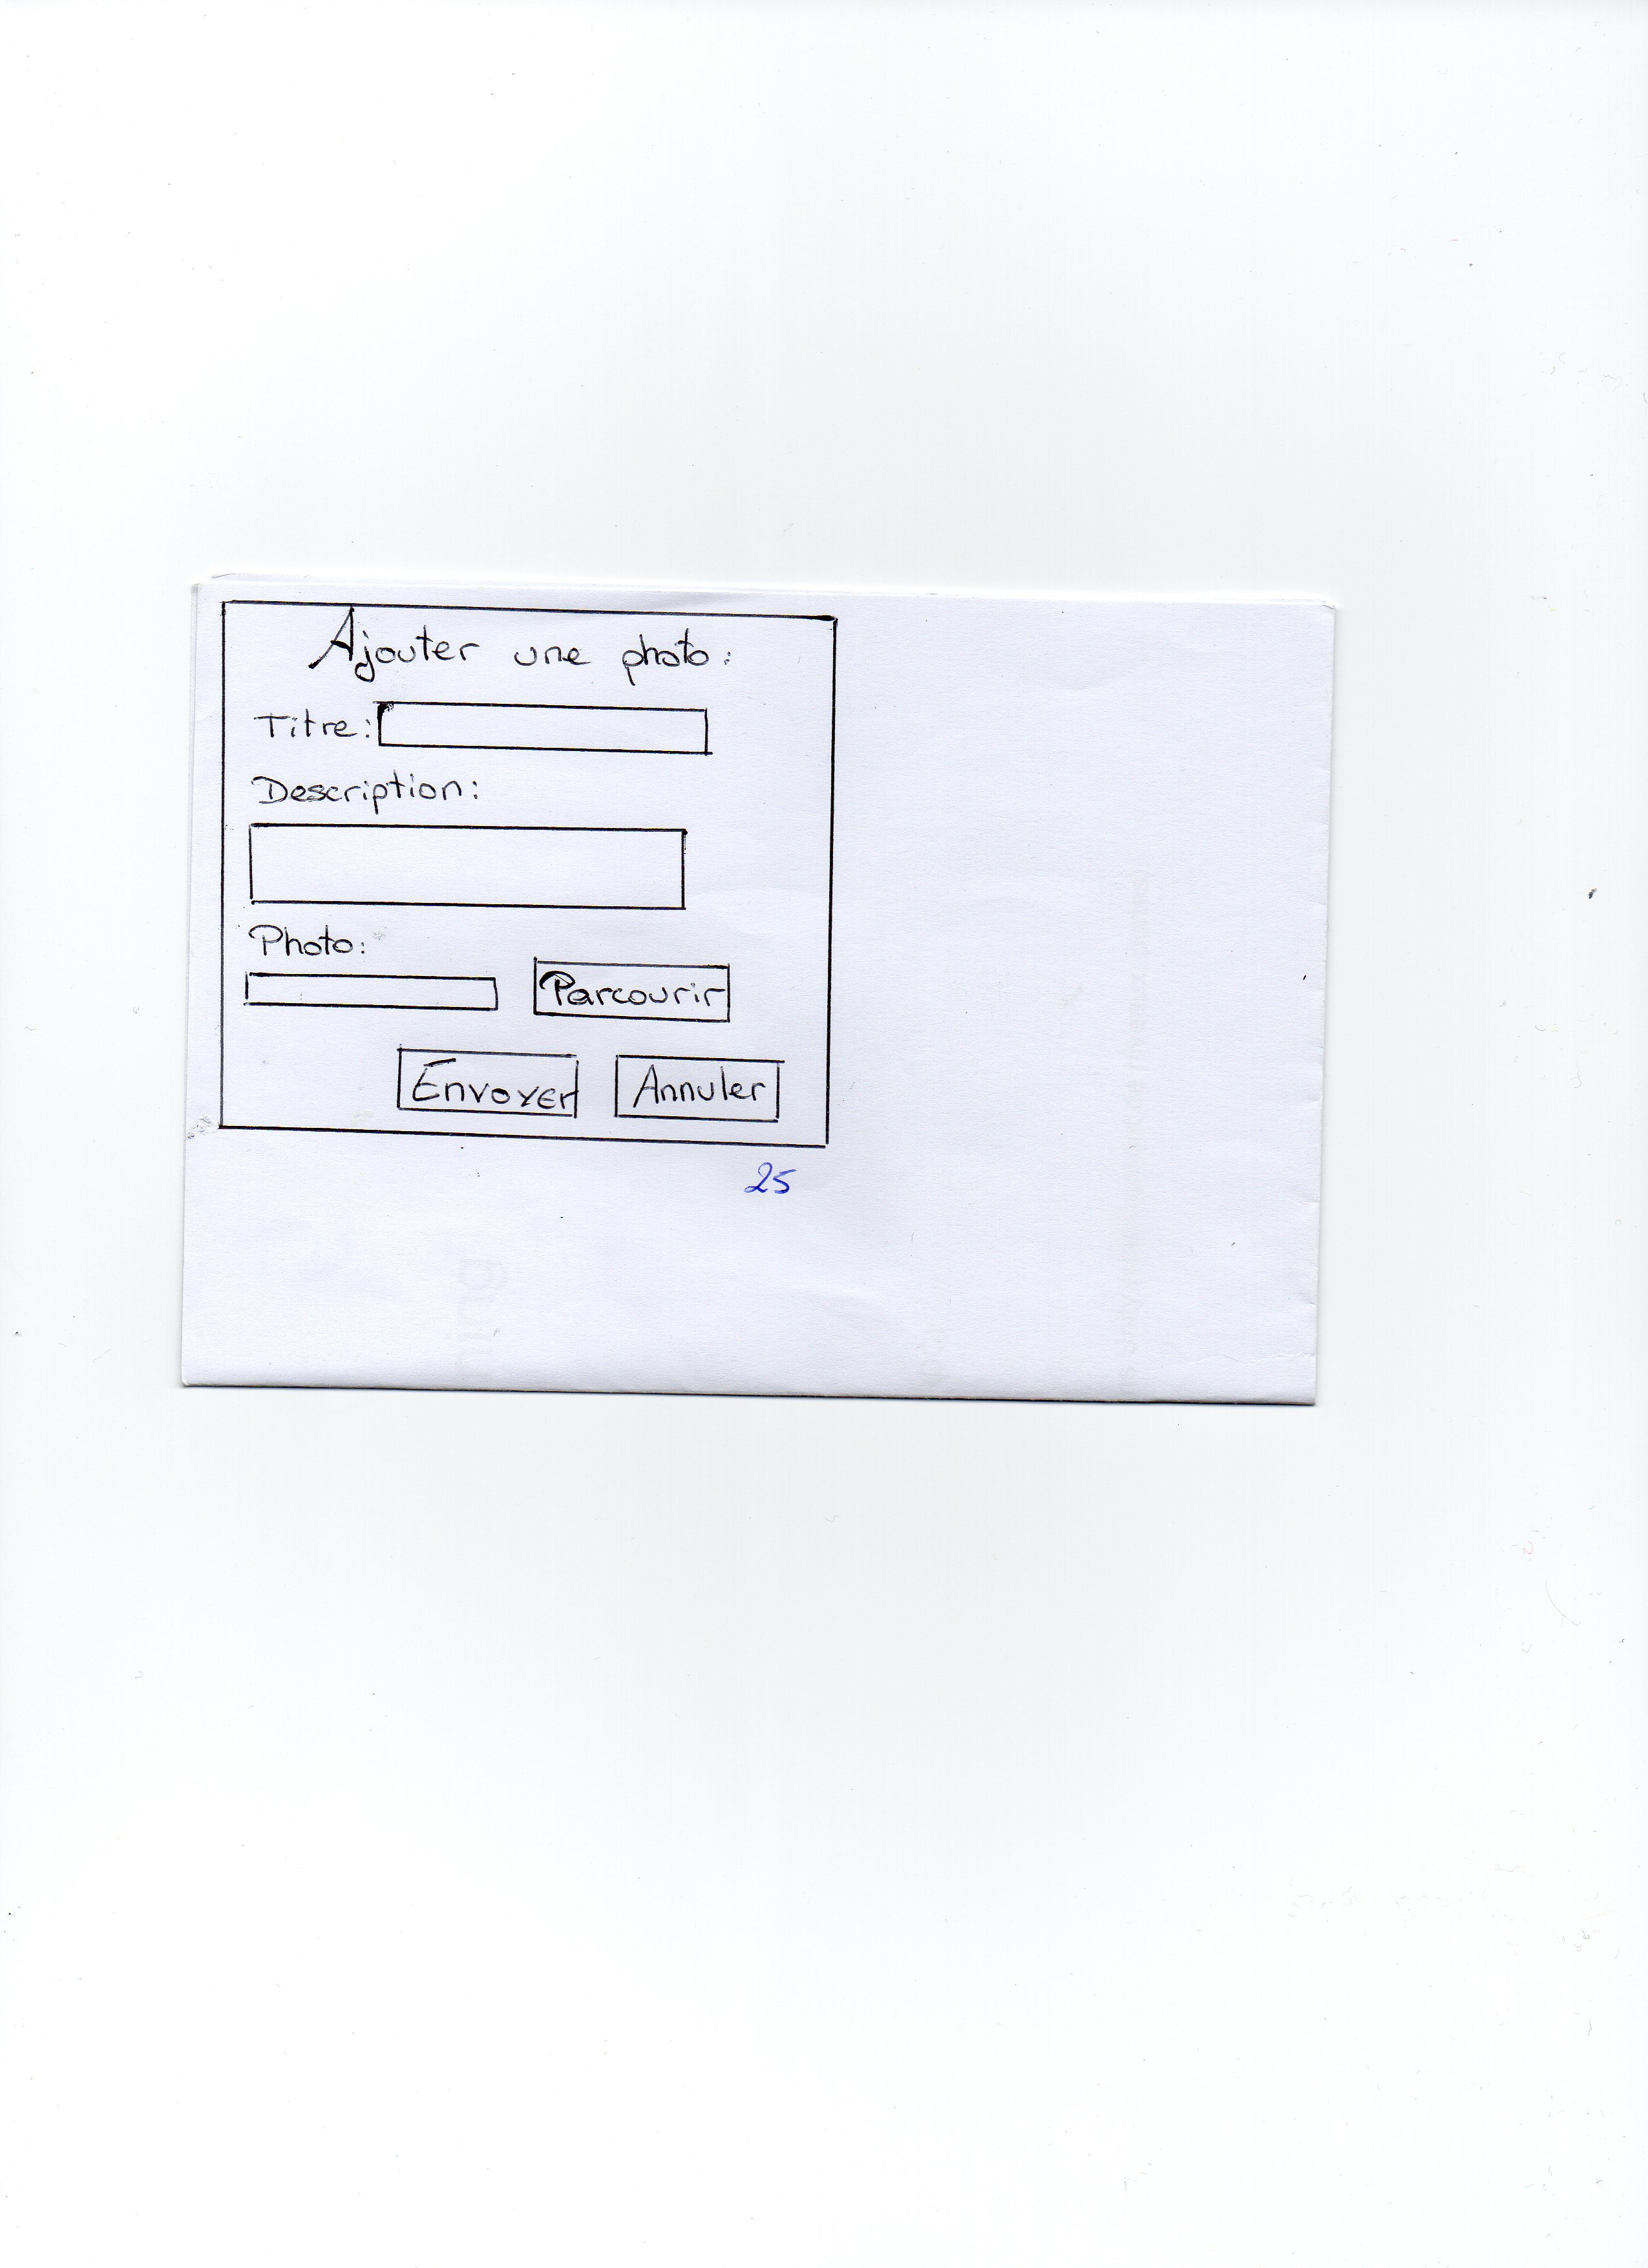 Ajouter une photo:
Titre:
Description:
Photo:
Parcourir
Envoyer Annuler
25